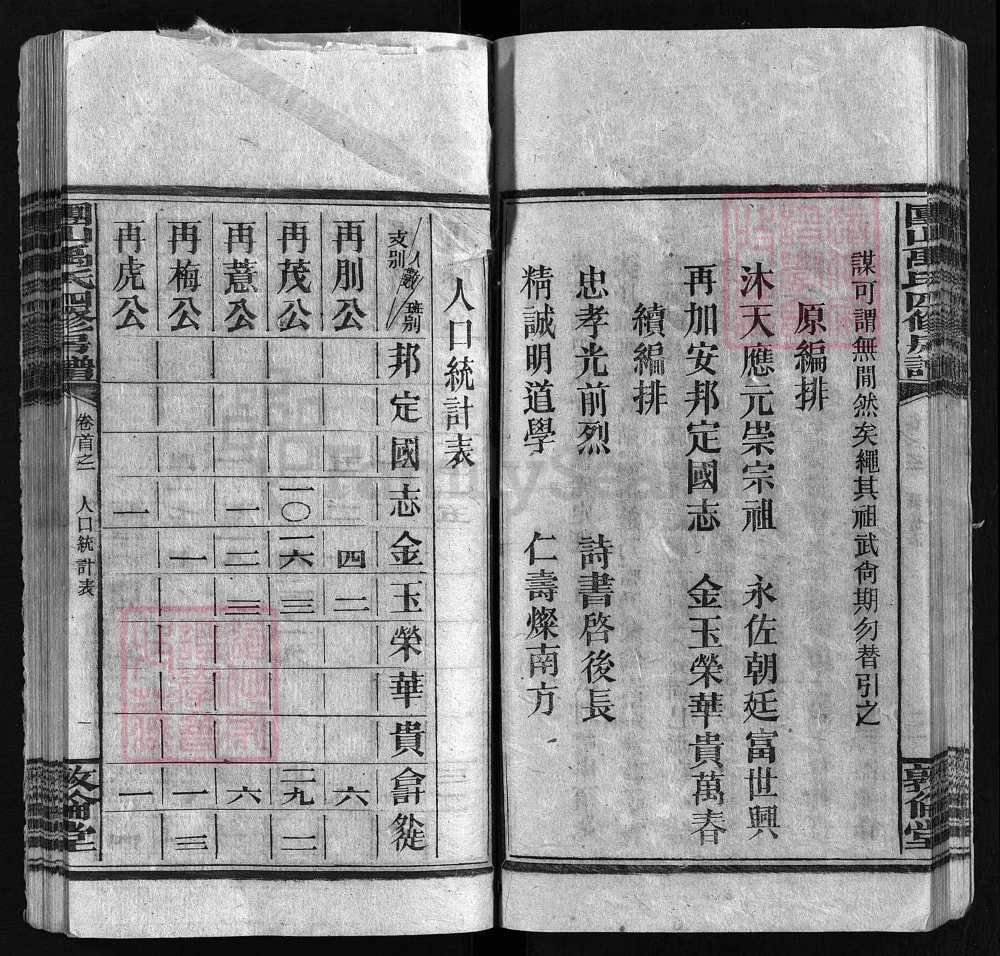 謀可謂無間然矣繩其祖武尙期勿替引之
原編排
沐天應元崇宗祖 永佐朝廷富世興
再加安邦定國志 金玉榮華貴萬春
續編排
忠孝光前烈 詩書啓後長
精誠明道學 仁壽燦南方
人口統計表
支別 人數 班別 邦 定 國 志 金 玉 榮 華 貴 合計
再刖公 四 二 六
再茂公 一〇 一六 三 二九 二
再薏公 一 二 三 六
再梅公 一 一 三
再虎公 一 一
團山禹氏四修房譜 卷首之一 人口統計表 一 敦倫堂
FamilySearch